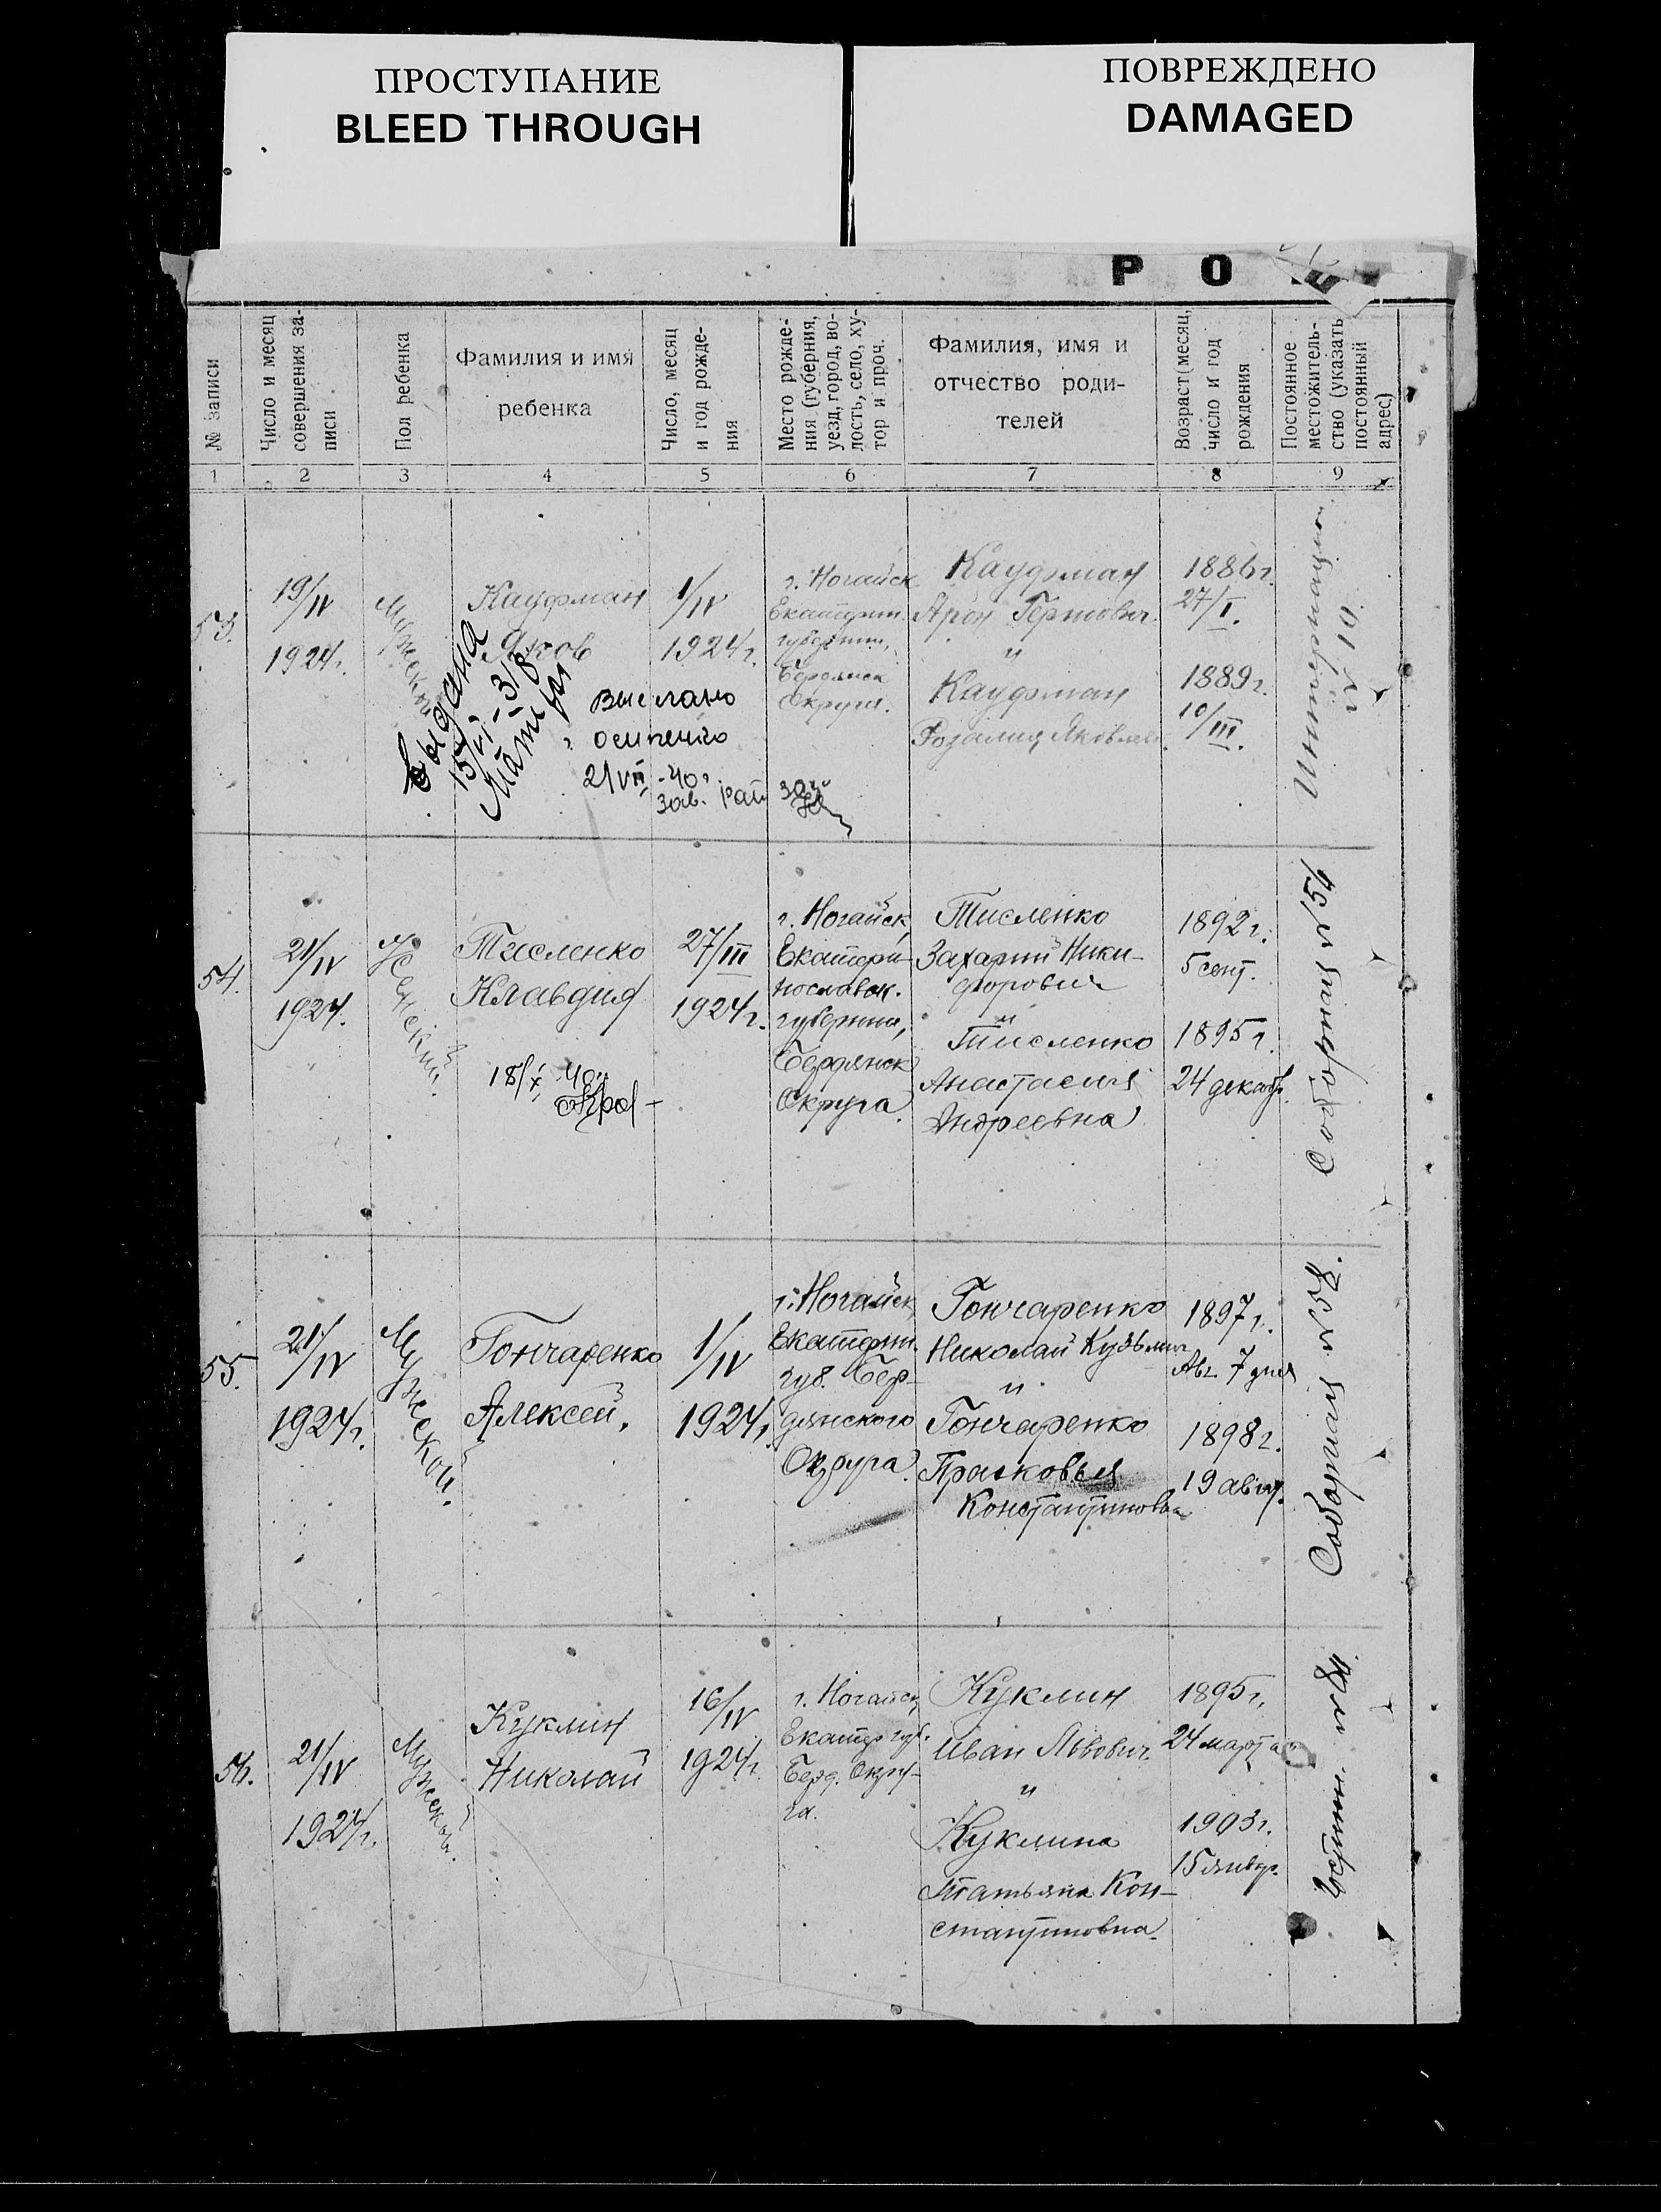 ПРОСТУПАНИЕ
BLEED THROUGH
ПОВРЕЖДЕНО
DAMAGED
Р О
№ записи
Число и месяц
совершения за-
писи
Пол ребенка
Фамилия и имя
ребенка
Число, месяц
и год рожде-
ния
Место рожде-
ния (губерния,
уезд, город, во-
лость, село, ху-
тор и проч.
Фамилия, имя и
отчество роди-
телей
Возраст (месяц,
число и год
рождения
Постоянное
местожитель-
ство (указать
постоянный
адрес)
1 2 3 4 5 6 7 8 9
53.
19/IV
1924г.
Мужской
Кауфман
Яков
Выдана
15/VI-31
Мати
Выслано
Осипенко
21/VII -40г
Зав. рай
1/IV
1924г.
г. Ногайск
Екатерин.
губернии,
Бердянск
Округа.
Кауфман
Арон
и
Кауфман
Розалия
1886г.
27/I.
1889г.
10/III.
54.
21/IV
1924.
Женский.
Тисленко
Клавдия
18/X 40г
27/III
1924г.
г. Ногайск,
Екатери-
нославск.
губернии,
Бердянск
Округа.
Тисленко
Захарий Ники-
форович
и
Тисленко
Анастасия
Андреевна
1892г.
5 сент.
1895г.
24 декабр.
Соборная №54
55.
21/IV
1924г.
Мужской.
Гончаренко
Алексей.
1/IV
1924г.
г. Ногайск,
Екатерин.
губ. Бер-
дянского
Округа.
Гончаренко
Николай Кузьмич
и
Гончаренко
Прасковья
Константиновна
1897г.
Авг. 7 дня
1898г.
19 август.
Соборная №58.
56.
21/IV
1924г.
Мужской.
Куклин
Николай
16/IV
1924г.
г. Ногайск,
Екатер губ.
Берд. Окру-
га.
Куклин
Иван Львович.
и
Куклина
Татьяна Кон-
стантиновна.
1895г.
24 марта
1903г.
15 январ.